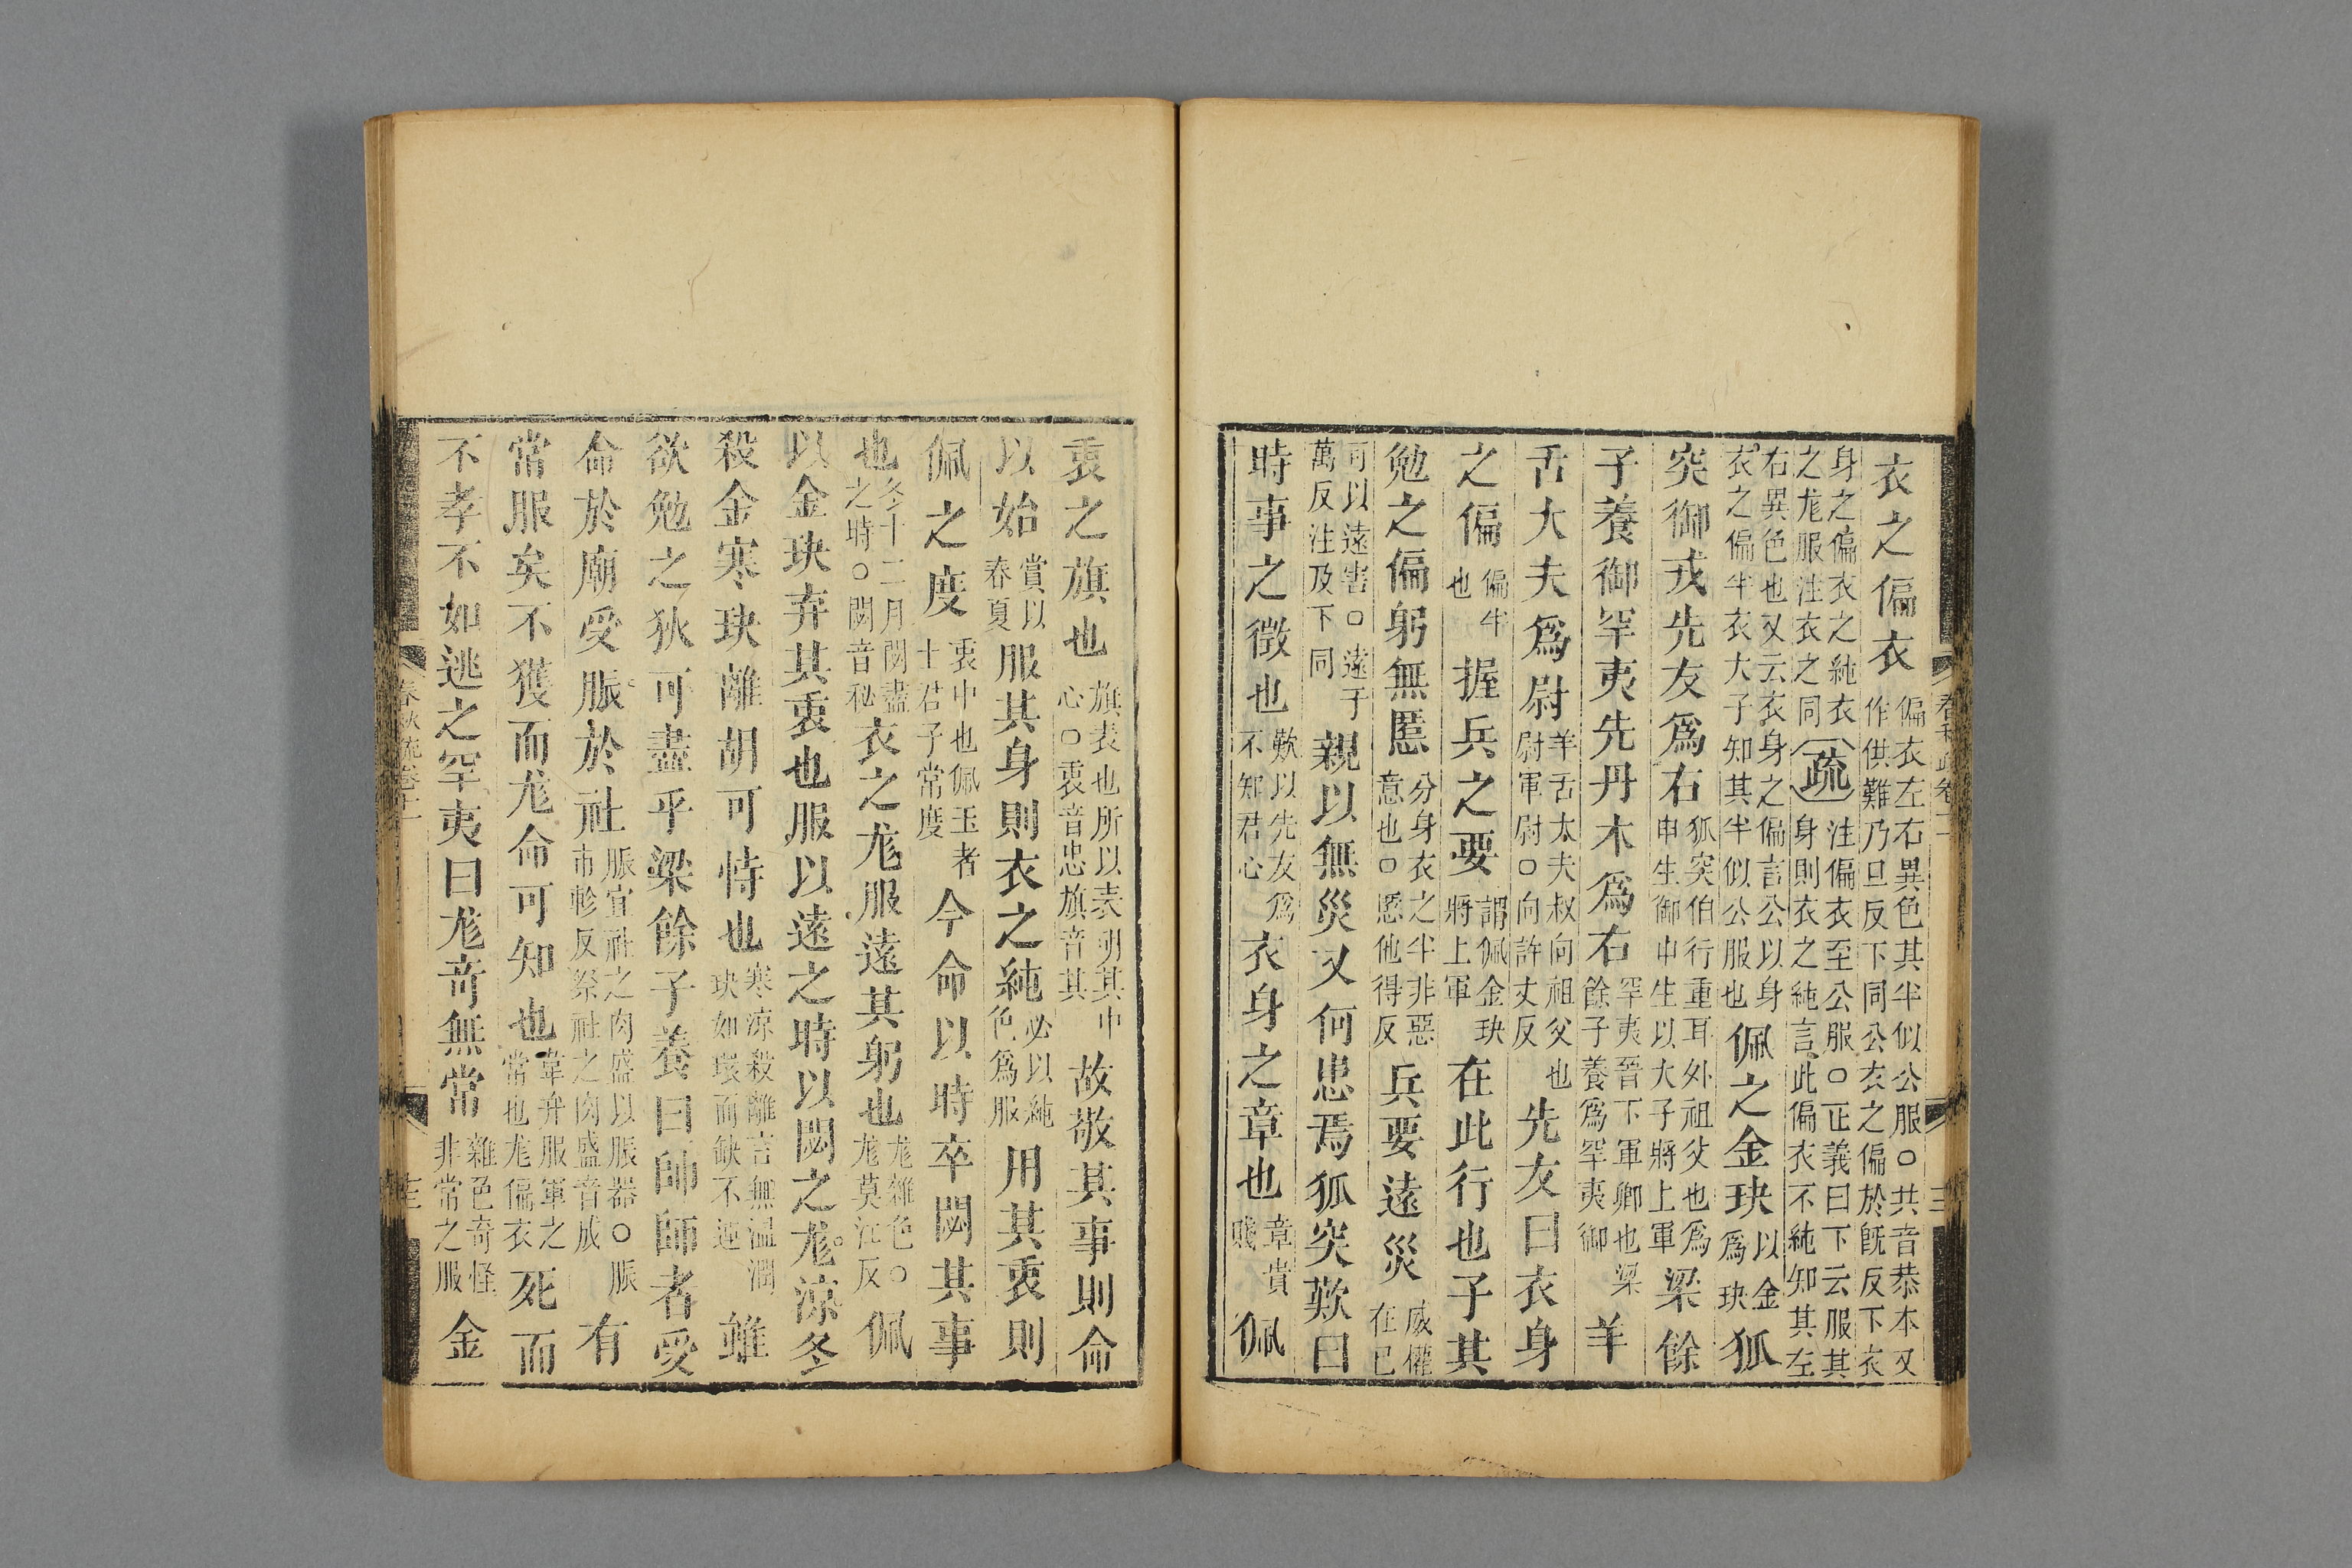 衣之偏衣偏衣左右異色其半似公服○共音恭本又作供難乃旦反下同公衣之偏於旣反下衣
身之偏衣之純衣之尨服注衣之同疏注偏衣至公服○正義曰下云服其身則衣之純言此偏衣不純知其左
右異色也又云衣身之偏言公以身衣之偏半衣大子知其半似公服也佩之金玦以金爲玦狐
突御戎先友爲右狐突伯行重耳外祖父也爲申生御申生以大子將上軍梁餘
子養御罕夷先丹木爲右罕夷晉下軍卿也梁餘子養爲罕夷御羊
舌大夫爲尉羊舌大夫叔向祖父也尉軍尉○向許丈反先友曰衣身
之偏偏半也握兵之要謂佩金玦將上軍在此行也子其
勉之偏躬無慝分身衣之半非惡意也○慝他得反兵要遠災威權在已
可以遠害○遠于萬反注及下同親以無災又何患焉狐突歎曰
時事之徵也歎以先友爲不知君心衣身之章也章貴賤佩
衷之旗也旗表也所以表明其中心○衷音忠旗音其故敬其事則命
以始賞以春夏服其身則衣之純必以純色爲服用其衷則
佩之度衷中也佩玉者士君子常度今命以時卒閟其事
也冬十二月閟盡之時○閟音秘衣之尨服遠其躬也尨雜色○尨莫江反佩
以金玦弃其衷也服以遠之時以閟之尨涼冬
殺金寒玦離胡可恃也寒涼殺離言無溫潤玦如環而缺不連雖
欲勉之狄可盡乎梁餘子養曰帥師者受
命於廟受脤於社脤宜社之肉盛以脤器○脤市軫反祭社之肉盛音成有
常服矣不獲而尨命可知也韋弁服軍之常也尨偏衣死而
不孝不如逃之罕夷曰尨奇無常雜色奇怪非常之服金